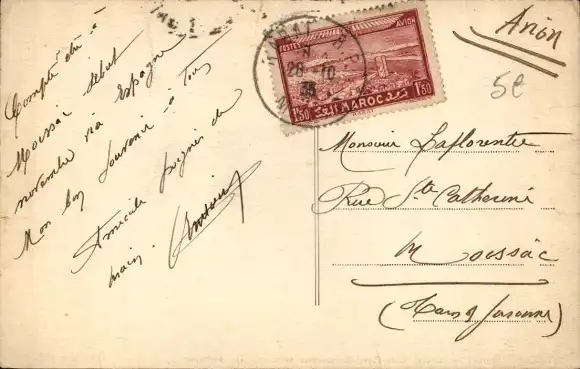 Compte être à
Moissac début
novembre via Espagne
Mon bon souvenir à tous
Amicale poignée de
main.
Avion
5€
POSTES AVION
28-10
35
1F50 MAROC 1F50
Monsieur Laflorentie
Rue Ste Catherine
Moissac
(Tarn & Garonne)